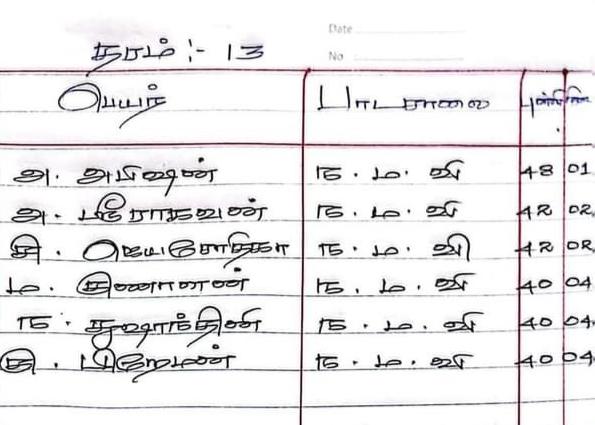 Date
No
தரம் :- 13
பெயர் பாடசாலை புள்ளி நிலை
அ. அபிஷன் ந. ம. வி 48 01
அ. மீராகவன் ந. ம. வி 42 02
சி. ஜெயசோதிகா ந. ம. வி 42 02
ம. தினானன் ந. ம. வி 40 04
ந. துஷாந்தின் ந. ம. வி 40 04
தி. பிறேமன் ந. ம. வி 40 04